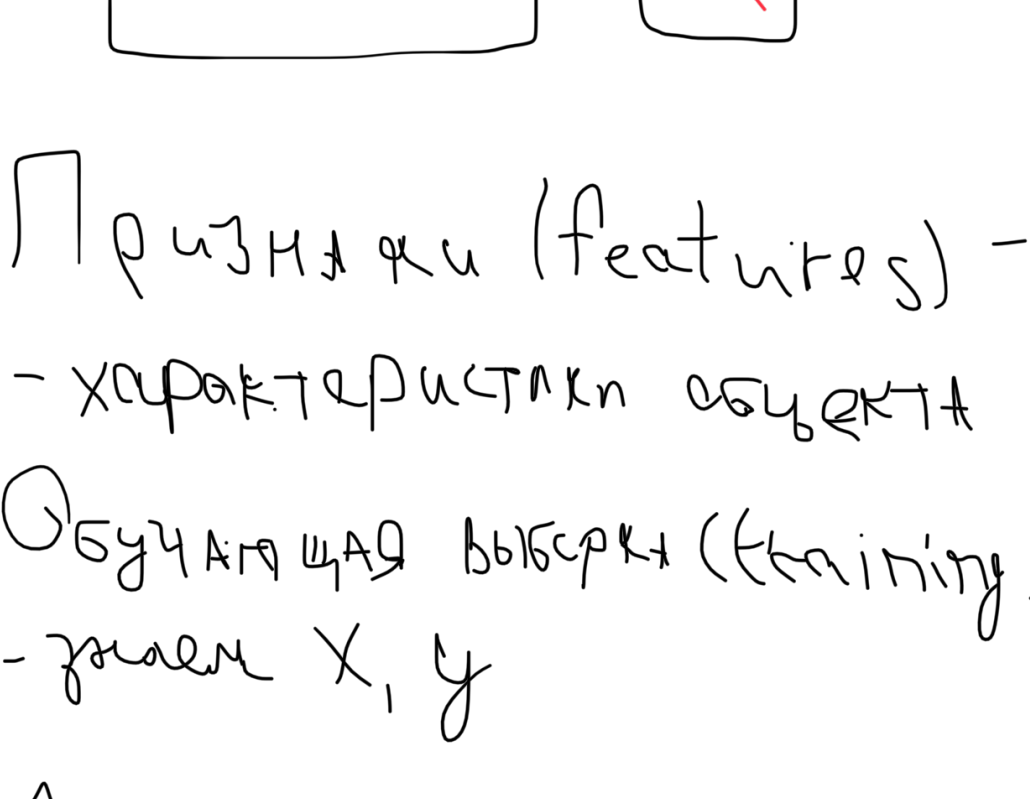 Признаки (features) -
- характеристики объекта
Обучающая выборка (training
- знаем X, y